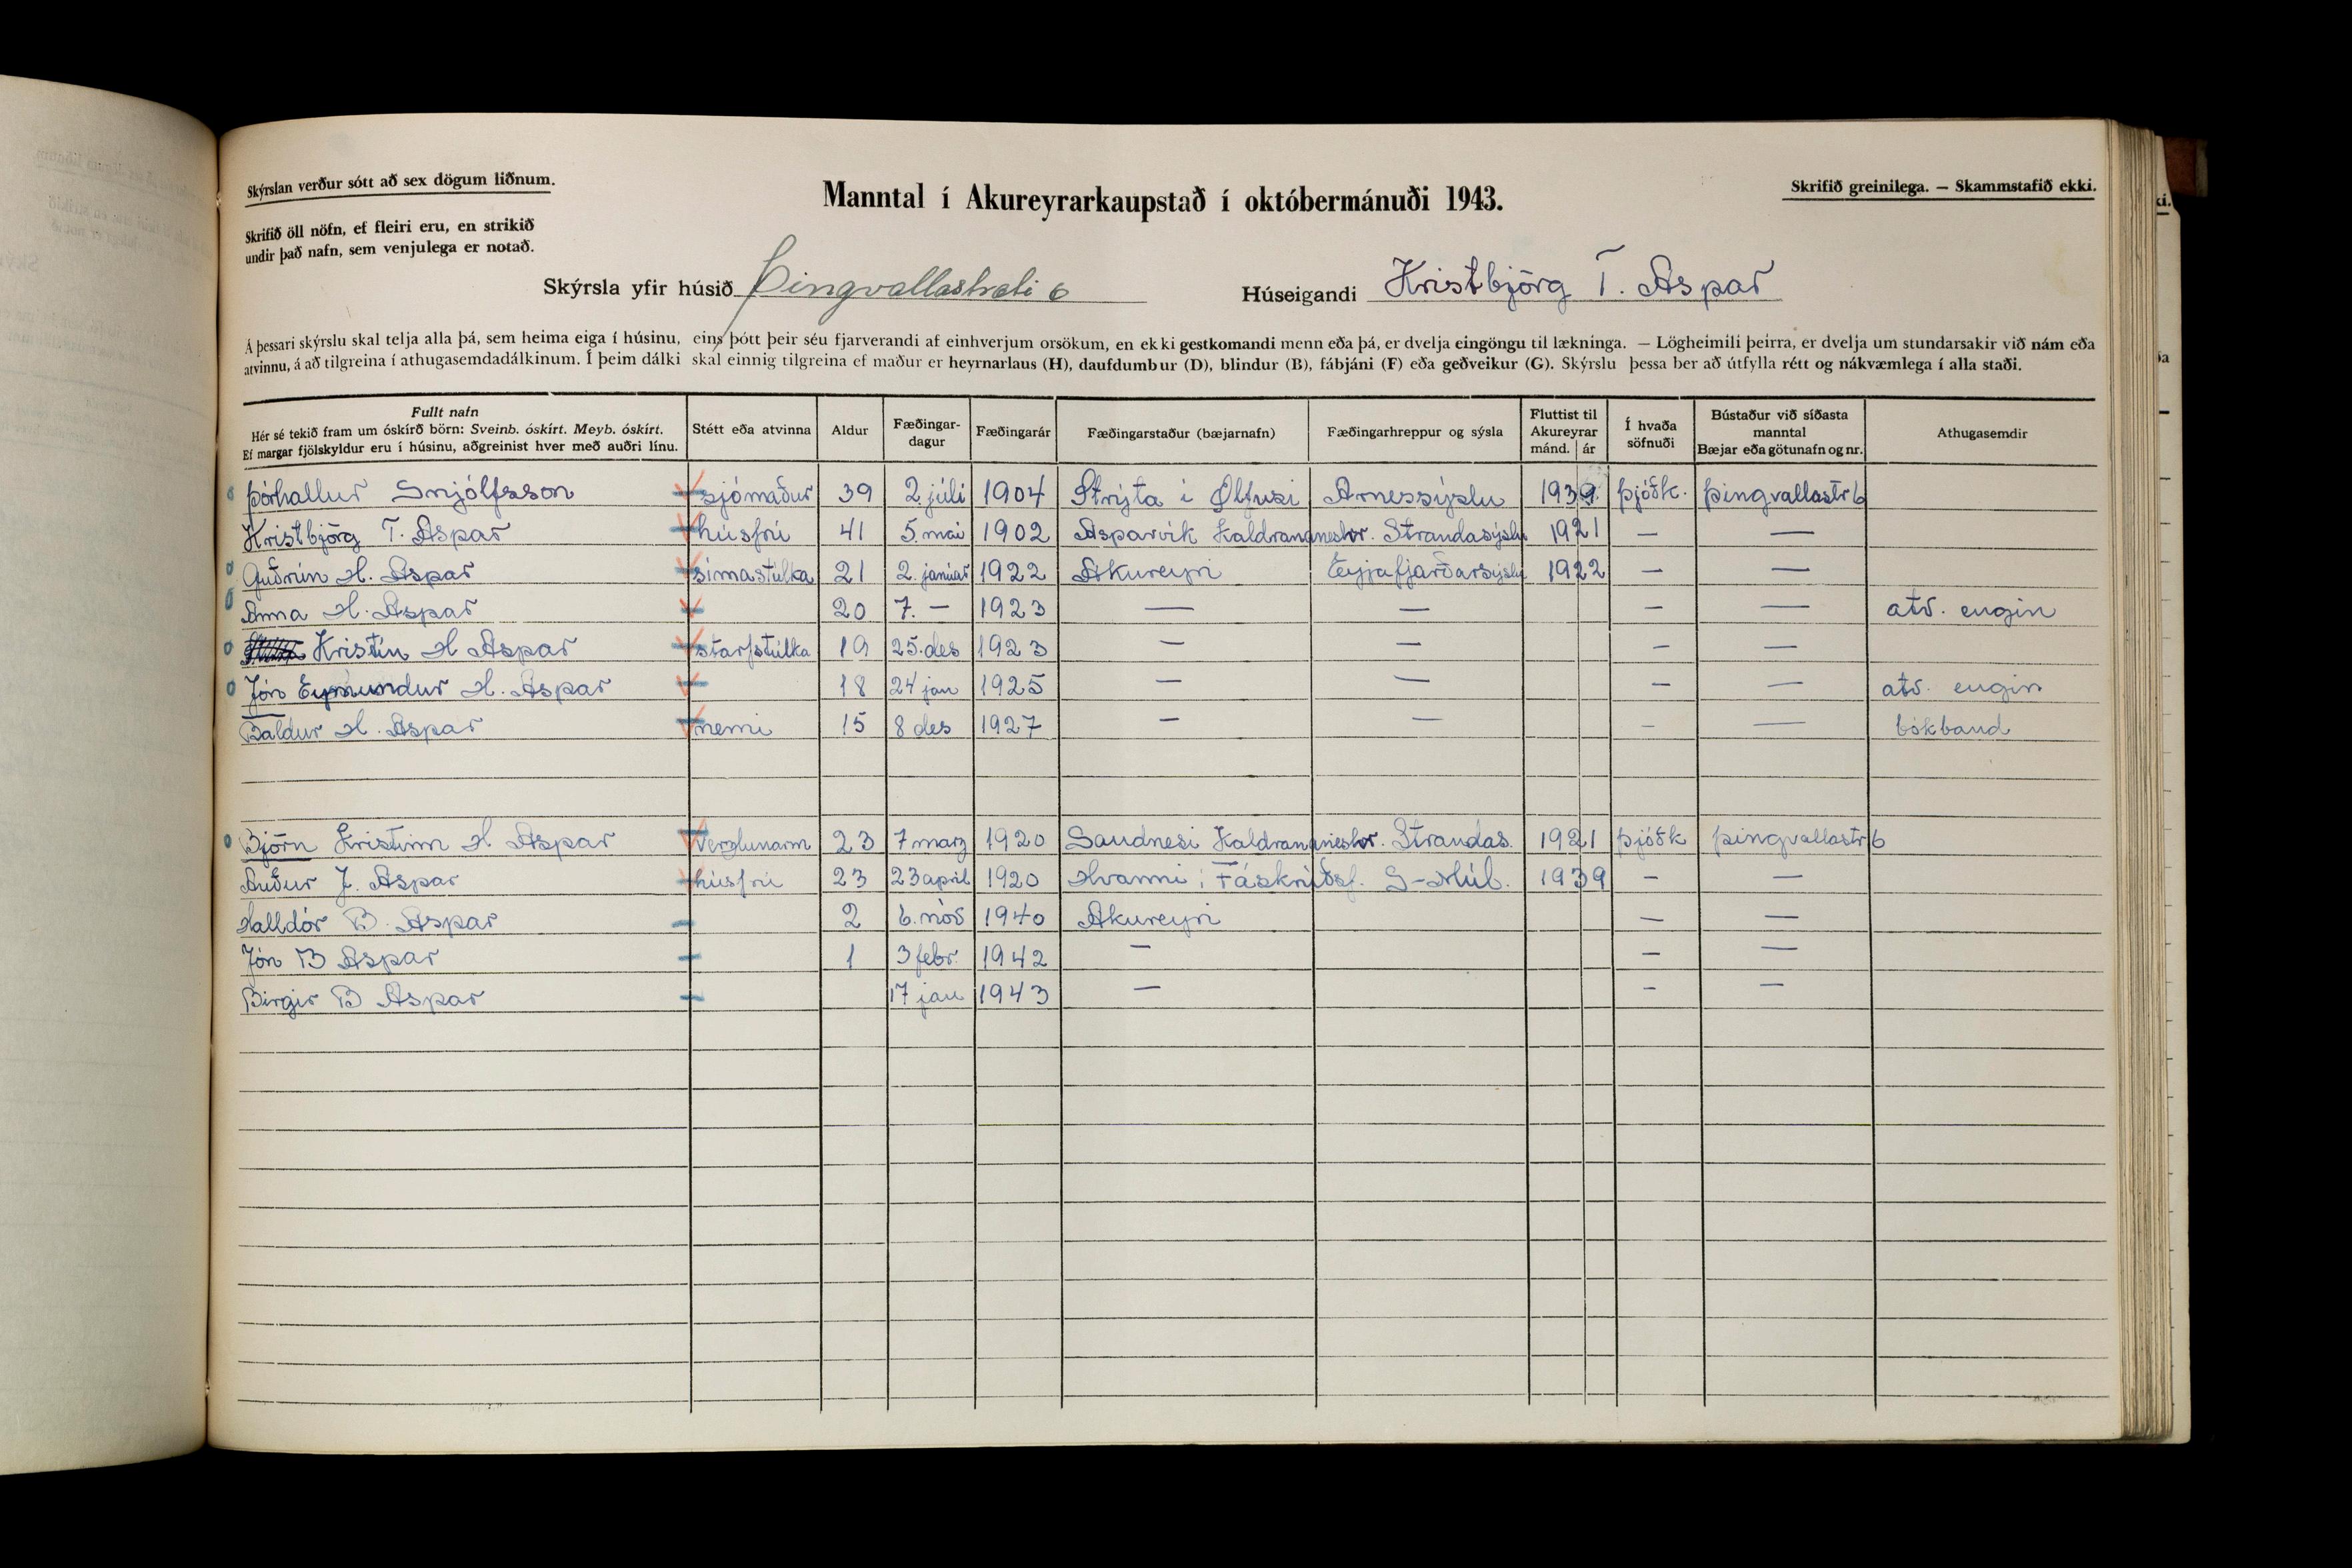 Skýrslan verður sótt að sex dögum liðnum.
Manntal í Akureyrarkaupstað í októbermánuði 1943.
Skrifið greinilega. — Skammstafið ekki.
Skrifið öll nöfn, ef fleiri eru, en strikið
undir það nafn, sem venjulega er notað.
Skýrsla yfir húsið Þingvallastræti 6 Húseigandi Kristbjörg T. Aspar
Á þessari skýrslu skal telja alla þá, sem heima eiga í húsinu, eins þótt þeir séu fjarverandi af einhverjum orsökum, en ekki gestkomandi menn eða þá, er dvelja eingöngu til lækninga. — Lögheimili þeirra, er dvelja um stundarsakir við nám eða
atvinnu, á að tilgreina í athugasemdadálkinum. Í þeim dálki skal einnig tilgreina ef maður er heyrnarlaus (H), daufdumbur (D), blindur (B), fábjáni (F) eða geðveikur (G). Skýrslu þessa ber að útfylla rétt og nákvæmlega í alla staði.
Fullt nafn
Hér sé tekið fram um óskírð börn: Sveinb. óskírt. Meyb. óskírt.
Ef margar fjölskyldur eru í húsinu, aðgreinist hver með auðri línu.
Stétt eða atvinna
Aldur
Fæðingar-
dagur
Fæðingarár
Fæðingarstaður (bæjarnafn)
Fæðingarhreppur og sýsla
Fluttist til
Akureyrar
mánd. ár
Í hvaða
söfnuði
Bústaður við síðasta
manntal
Bæjar eða götunafn og nr.
Athugasemdir
Þórhallur Snjólfsson sjómaður 39 2. júlí 1904 Strýta í Ölfusi Arnessýslu 1939 þjóðk. þingvallastr 6
Kristbjörg T. Aspar húsfrú 41 5. mai 1902 Asparvík Kaldrananeshr. Strandasýslu 1921 — —
Guðrún H. Aspar símastúlka 21 2. janúar 1922 Akureyri Eyjafjarðarsýslu 1922 — —
Anna H. Aspar 20 7. — 1923 — — — — atv. engin
Kristín H Aspar starfstúlka 19 25. des 1923 — — — —
Jón Eymundur H. Aspar 18 24 jan 1925 — — — — atv. engin
Baldur H. Aspar nemi 15 8 des 1927 — — — — bókband
Björn Kristinn H Aspar Verzlunarm 23 7 marz 1920 Sandnesi Kaldrananeshr. Strandas. 1921 þjóðk þingvallastr 6
Auður J. Aspar húsfrú 23 23 apríl 1920 Hvammi í Fáskrúðsf. S-Múl. 1939 — —
Halldór B. Aspar 2 6. nóv 1940 Akureyri — —
Jón B Aspar 1 3 febr. 1942 — — —
Birgir B Aspar 17 jan 1943 — — —